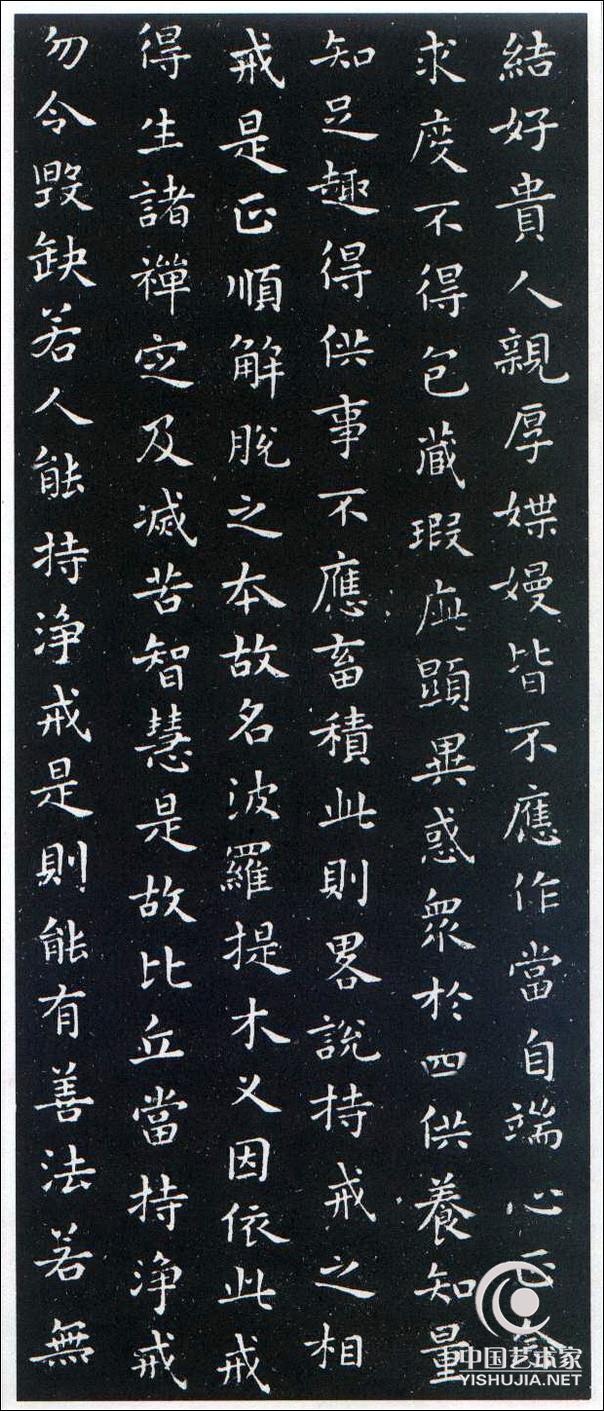 結好貴人親厚媟嫚皆不應作當自端心正念
求度不得包藏瑕疵顯異惑眾於四供養知量
知足趣得供事不應畜積此則畧說持戒之相
戒是正順解脫之本故名波羅提木叉因依此戒
得生諸禪定及滅苦智慧是故比丘當持净戒
勿令毀缺若人能持净戒是則能有善法若無
中国艺术家
YISHUJIA.NET